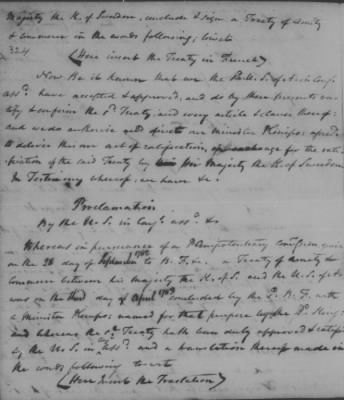 Majesty the K. of Sweden, conclude & sign a Treaty of Amity
& commerce in the words following, to wit
324
(Here insert the Treaty in French)
Now Be it known that we the sd. U. S. of A. in Cong.
assd. have accepted & approved, and do by these presents ra-
tify & confirm the sd. Treaty, and every article & clause thereof:
and we do authorise and direct our Minister Plenipo: afores.d
to deliver this our act of ratification, exchange for the rati-
fication of the said Treaty by his Majesty the K. of Sweden
In Testimony whereof, we have &c.
Proclamation
By the U. S. in Cong. assd. &c
Whereas in pursuance of a Plenipotentiary Comssion, given
on the 28 day of September 1782 to B. F. &c. a Treaty of Amity &
Commerce between his Majesty the K. of S. and the U. S. of A.
was on the third day of April 1783 concluded by the sd. B. F. with
a Minister Plenipo: named for that purpose by the sd. King:
and whereas the sd. Treaty hath been duly approved & ratified
by the U. S. in assd. and a translation thereof made in
the words following to wit
(Here Insert the Translation)